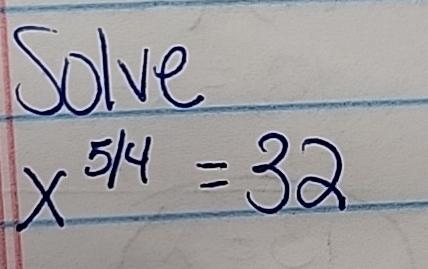 Solve
x^5/4 = 32